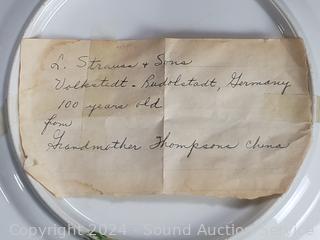 L. Strauss & Sons
Volkstedt - Rudolstadt, Germany
100 years old
from
Grandmother Thompsons china
Copyright 2024 - Sound Auction Service